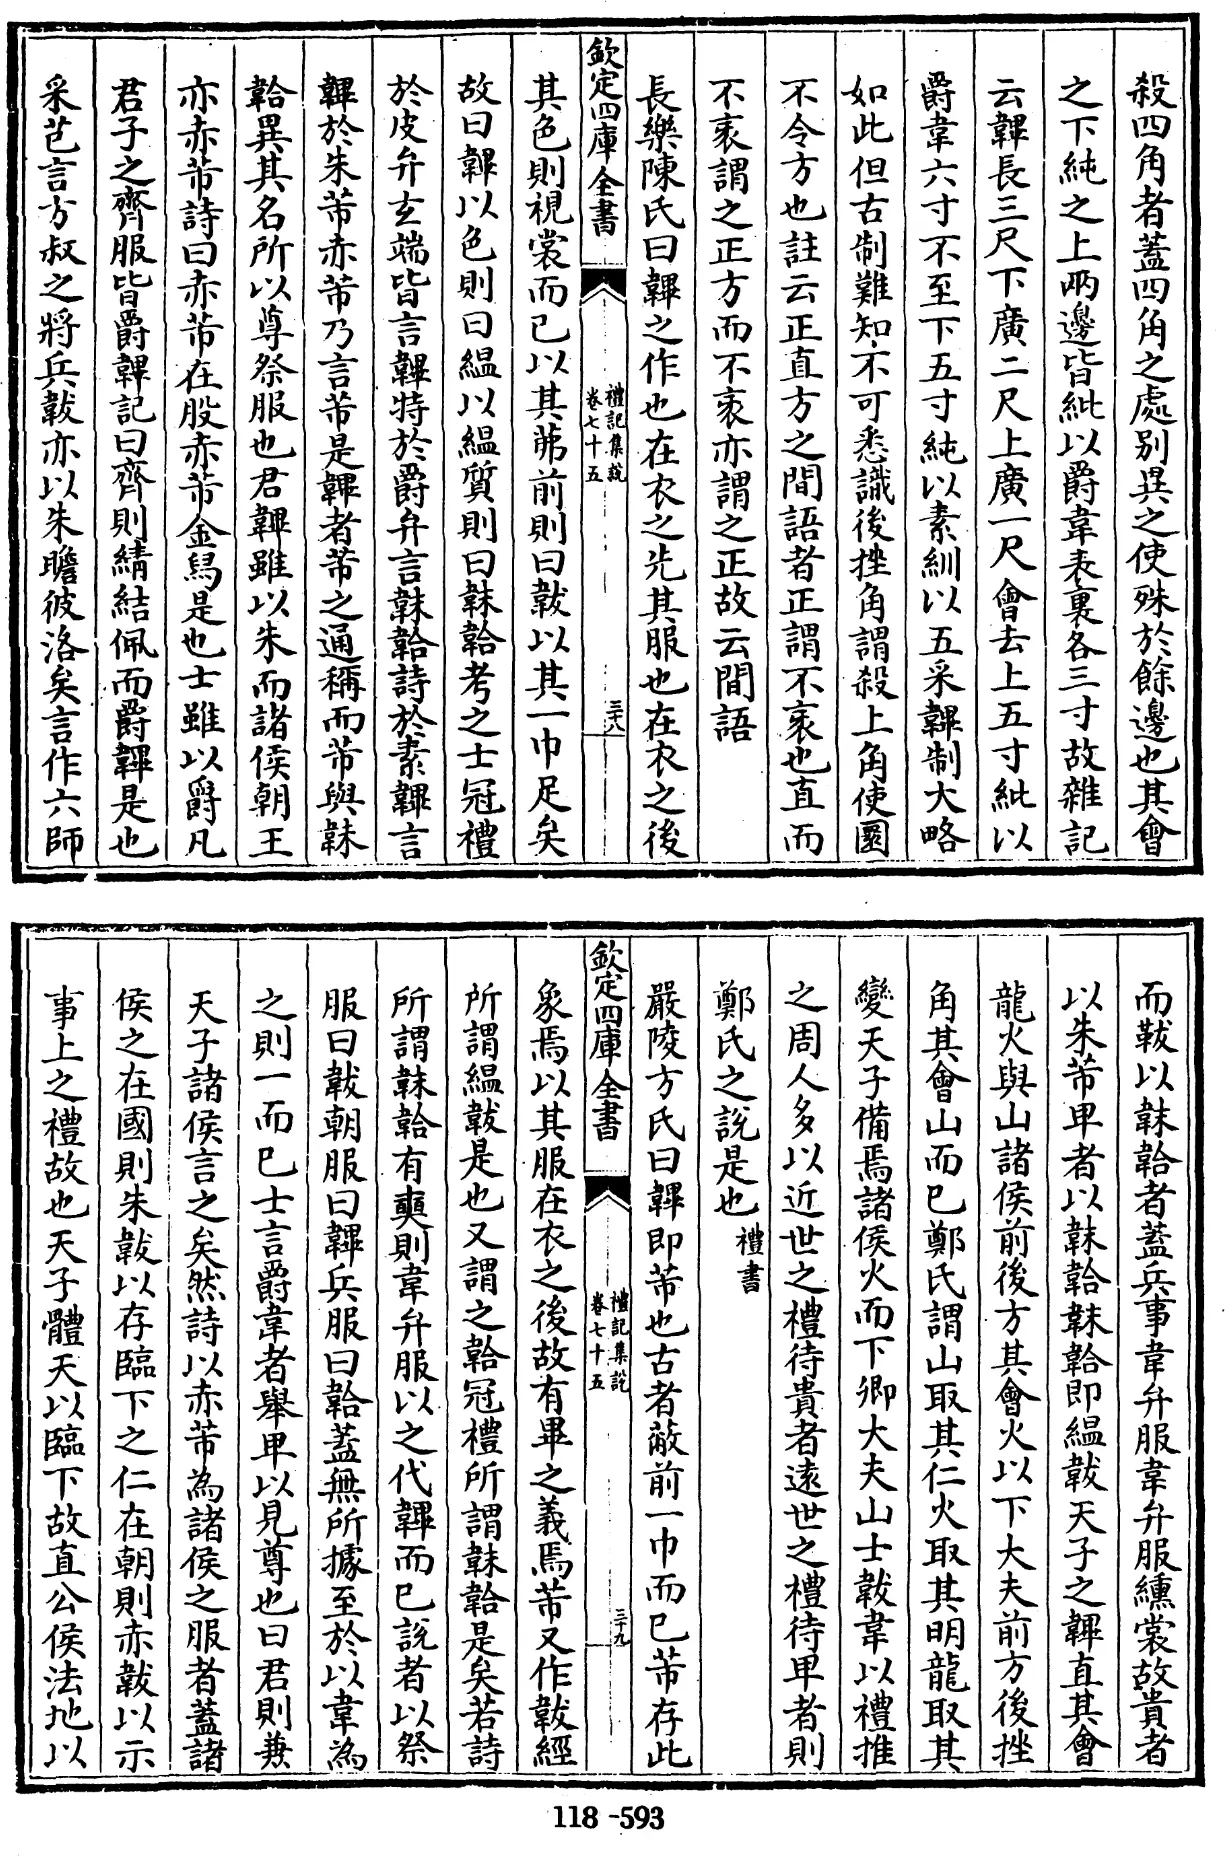 殺四角者蓋四角之處别異之使殊於餘邊也其會
之下純之上兩邊皆紕以爵韋表裏各三寸故雜記
云韠長三尺下廣二尺上廣一尺會去上五寸紕以
爵韋六寸不至下五寸純以素紃以五采韠制大略
如此但古制難知不可悉識後挫角謂殺上角使圜
不令方也註云正直方之間語者正謂不衺也直而
不衺謂之正方而不衺亦謂之正故云間語
長樂陳氏曰韠之作也在衣之先其服也在衣之後
欽定四庫全書
禮記集說
卷七十五
三十八
其色則視裳而已以其茀前則曰韍以其一巾足矣
故曰韠以色則曰緼以緼質則曰韎韐考之士冠禮
於皮弁玄端皆言韠特於爵弁言韎韐詩於素韠言
韠於朱芾赤芾乃言芾是韠者芾之通稱而芾與韎
韐異其名所以尊祭服也君韠雖以朱而諸侯朝王
亦赤芾詩曰赤芾在股赤芾金舄是也士雖以爵凡
君子之齊服皆爵韠記曰齊則綪結佩而爵韠是也
采芑言方叔之將兵韍亦以朱瞻彼洛矣言作六師
而韍以韎韐者蓋兵事韋弁服韋弁服纁裳故貴者
以朱芾卑者以韎韐韎韐即緼韍天子之韠直其會
龍火與山諸侯前後方其會火以下大夫前方後挫
角其會山而已鄭氏謂山取其仁火取其明龍取其
變天子備焉諸侯火而下卿大夫山士韍韋以禮推
之周人多以近世之禮待貴者遠世之禮待卑者則
鄭氏之說是也禮書
嚴陵方氏曰韠即芾也古者蔽前一巾而已芾存此
欽定四庫全書
禮記集說
卷七十五
三十九
象焉以其服在衣之後故有畢之義焉芾又作韍經
所謂緼韍是也又謂之韐冠禮所謂韎韐是矣若詩
所謂韎韐有奭則韋弁服以之代韠而已說者以祭
服曰韍朝服曰韠兵服曰韐蓋無所據至於以韋為
之則一而已士言爵韋者舉卑以見尊也曰君則兼
天子諸侯言之矣然詩以赤芾為諸侯之服者蓋諸
侯之在國則朱韍以存臨下之仁在朝則赤韍以示
事上之禮故也天子體天以臨下故直公侯法地以
118-593